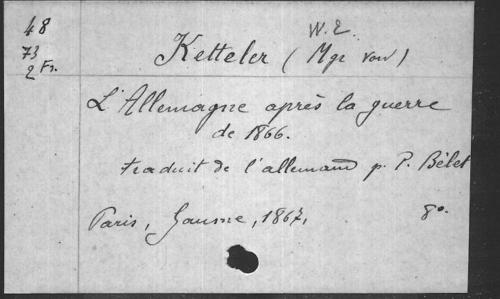 48
73
2 Fr.
W. E.
Ketteler (Mgr von)
L'Allemagne après la guerre
de 1866.
traduit de l'allemand p. P. Bélet
Paris, Gaume, 1867, 8º.